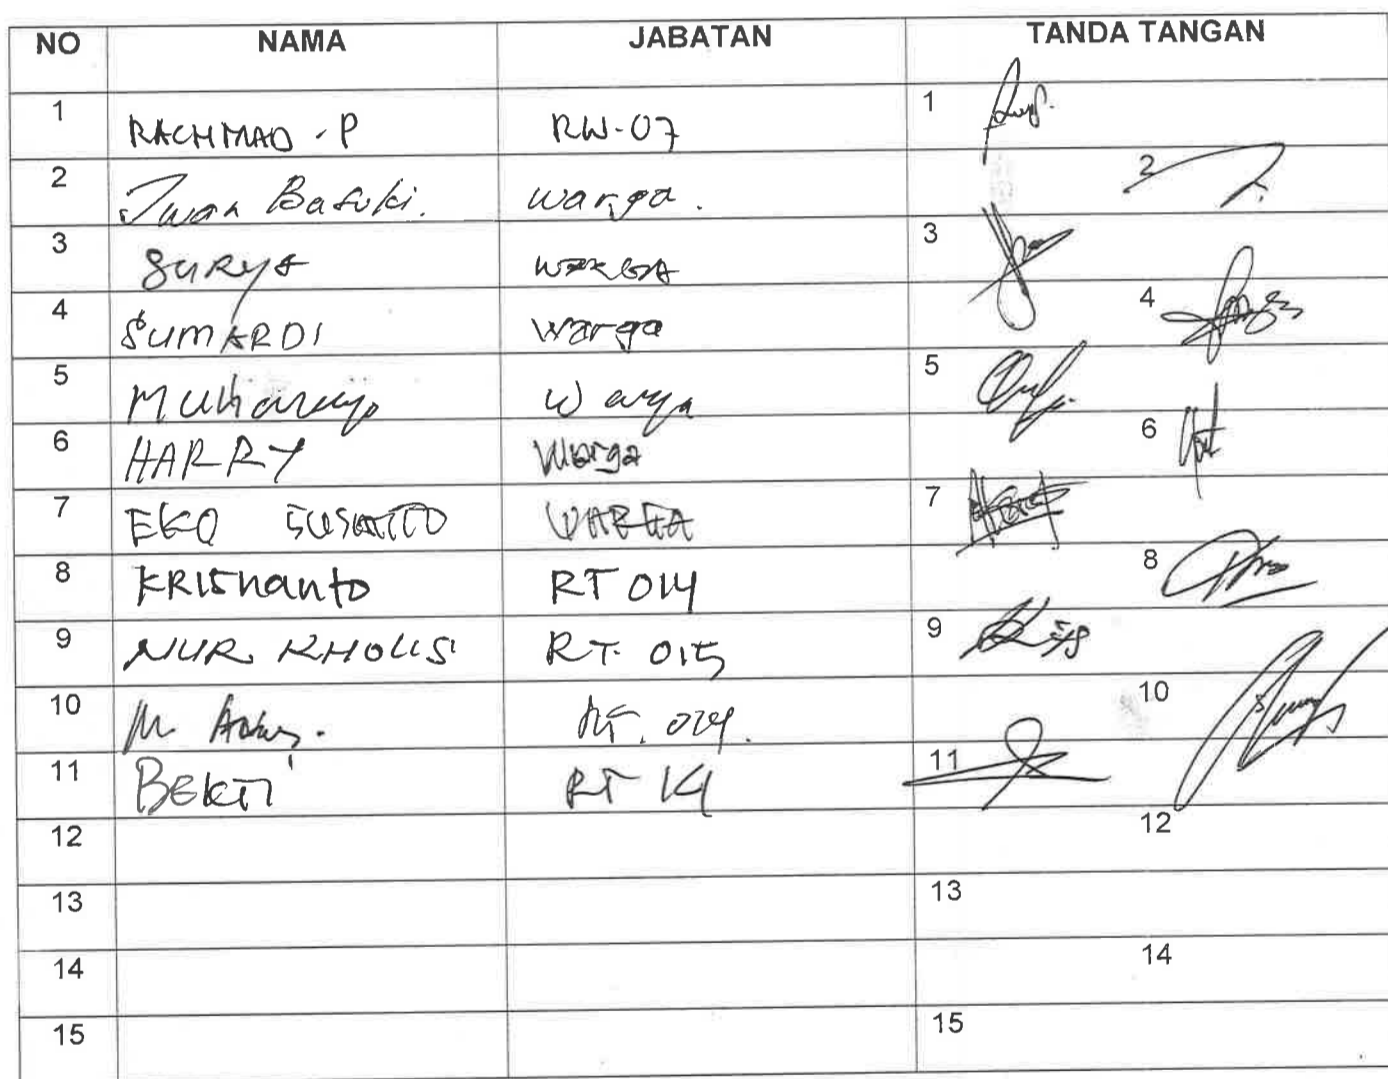 NO NAMA JABATAN TANDA TANGAN
1 RACHMAD . P RW-07 1
2 Iwan Basuki. warga. 2
3 SURYA WARGA 3
4 SUMARDI warga 4
5 Warga 5
6 HARRY Warga 6
7 EKO SUSANTO WARGA 7
8 KRISnanto RT 014 8
9 NUR KHOLIS RT. 015 9
10 M RT. 014. 10
11 BEKTI RT 14 11
12 12
13 13
14 14
15 15